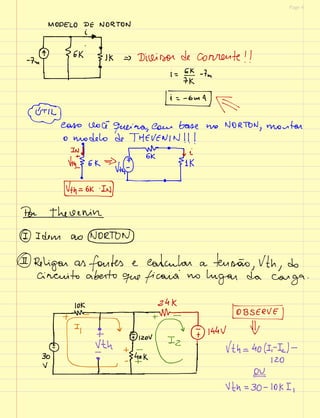 Page 4
MODELO DE NORTON
i
-7m 6K 1K ⇒ Divisor de Corrente!!
i = 6K/7K · -7m
i = -6mA
ÚTIL
caso você queira, com base no NORTON, montar
o modelo de THEVENIN!!!
IN 6K i
Vth 6K ⇒ Vth 1K
Vth = 6K · IN
Por thevenin
I Idem ao NORTON
II Religar as fontes e calcular a tensão, Vth, do
circuito aberto que ficaria no lugar da carga.
10K 24K OBSERVE
I1 Vth 120V I2 144V
Vth = 40(I1-I2) -
120
30 V 40K OU
Vth = 30 - 10K I1